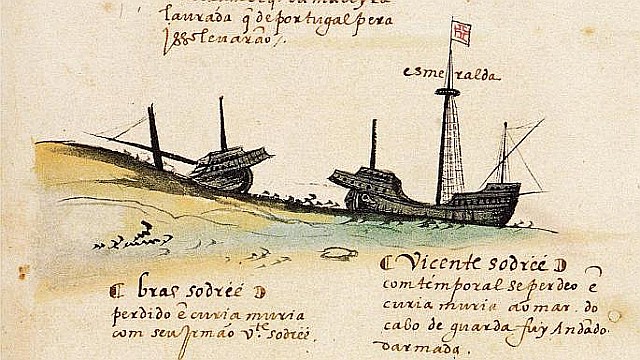 laurada q̃ de portugal pera
Jsso leuarão
esmeralda
bras sodréé
perdido ẽ curia muria
com seu Jrmão vte sodréé.
Vicente sodréé
com temporal se perdeo ẽ
curia muria ao mar. do
cabo de guarda fuy Andado
darmada.